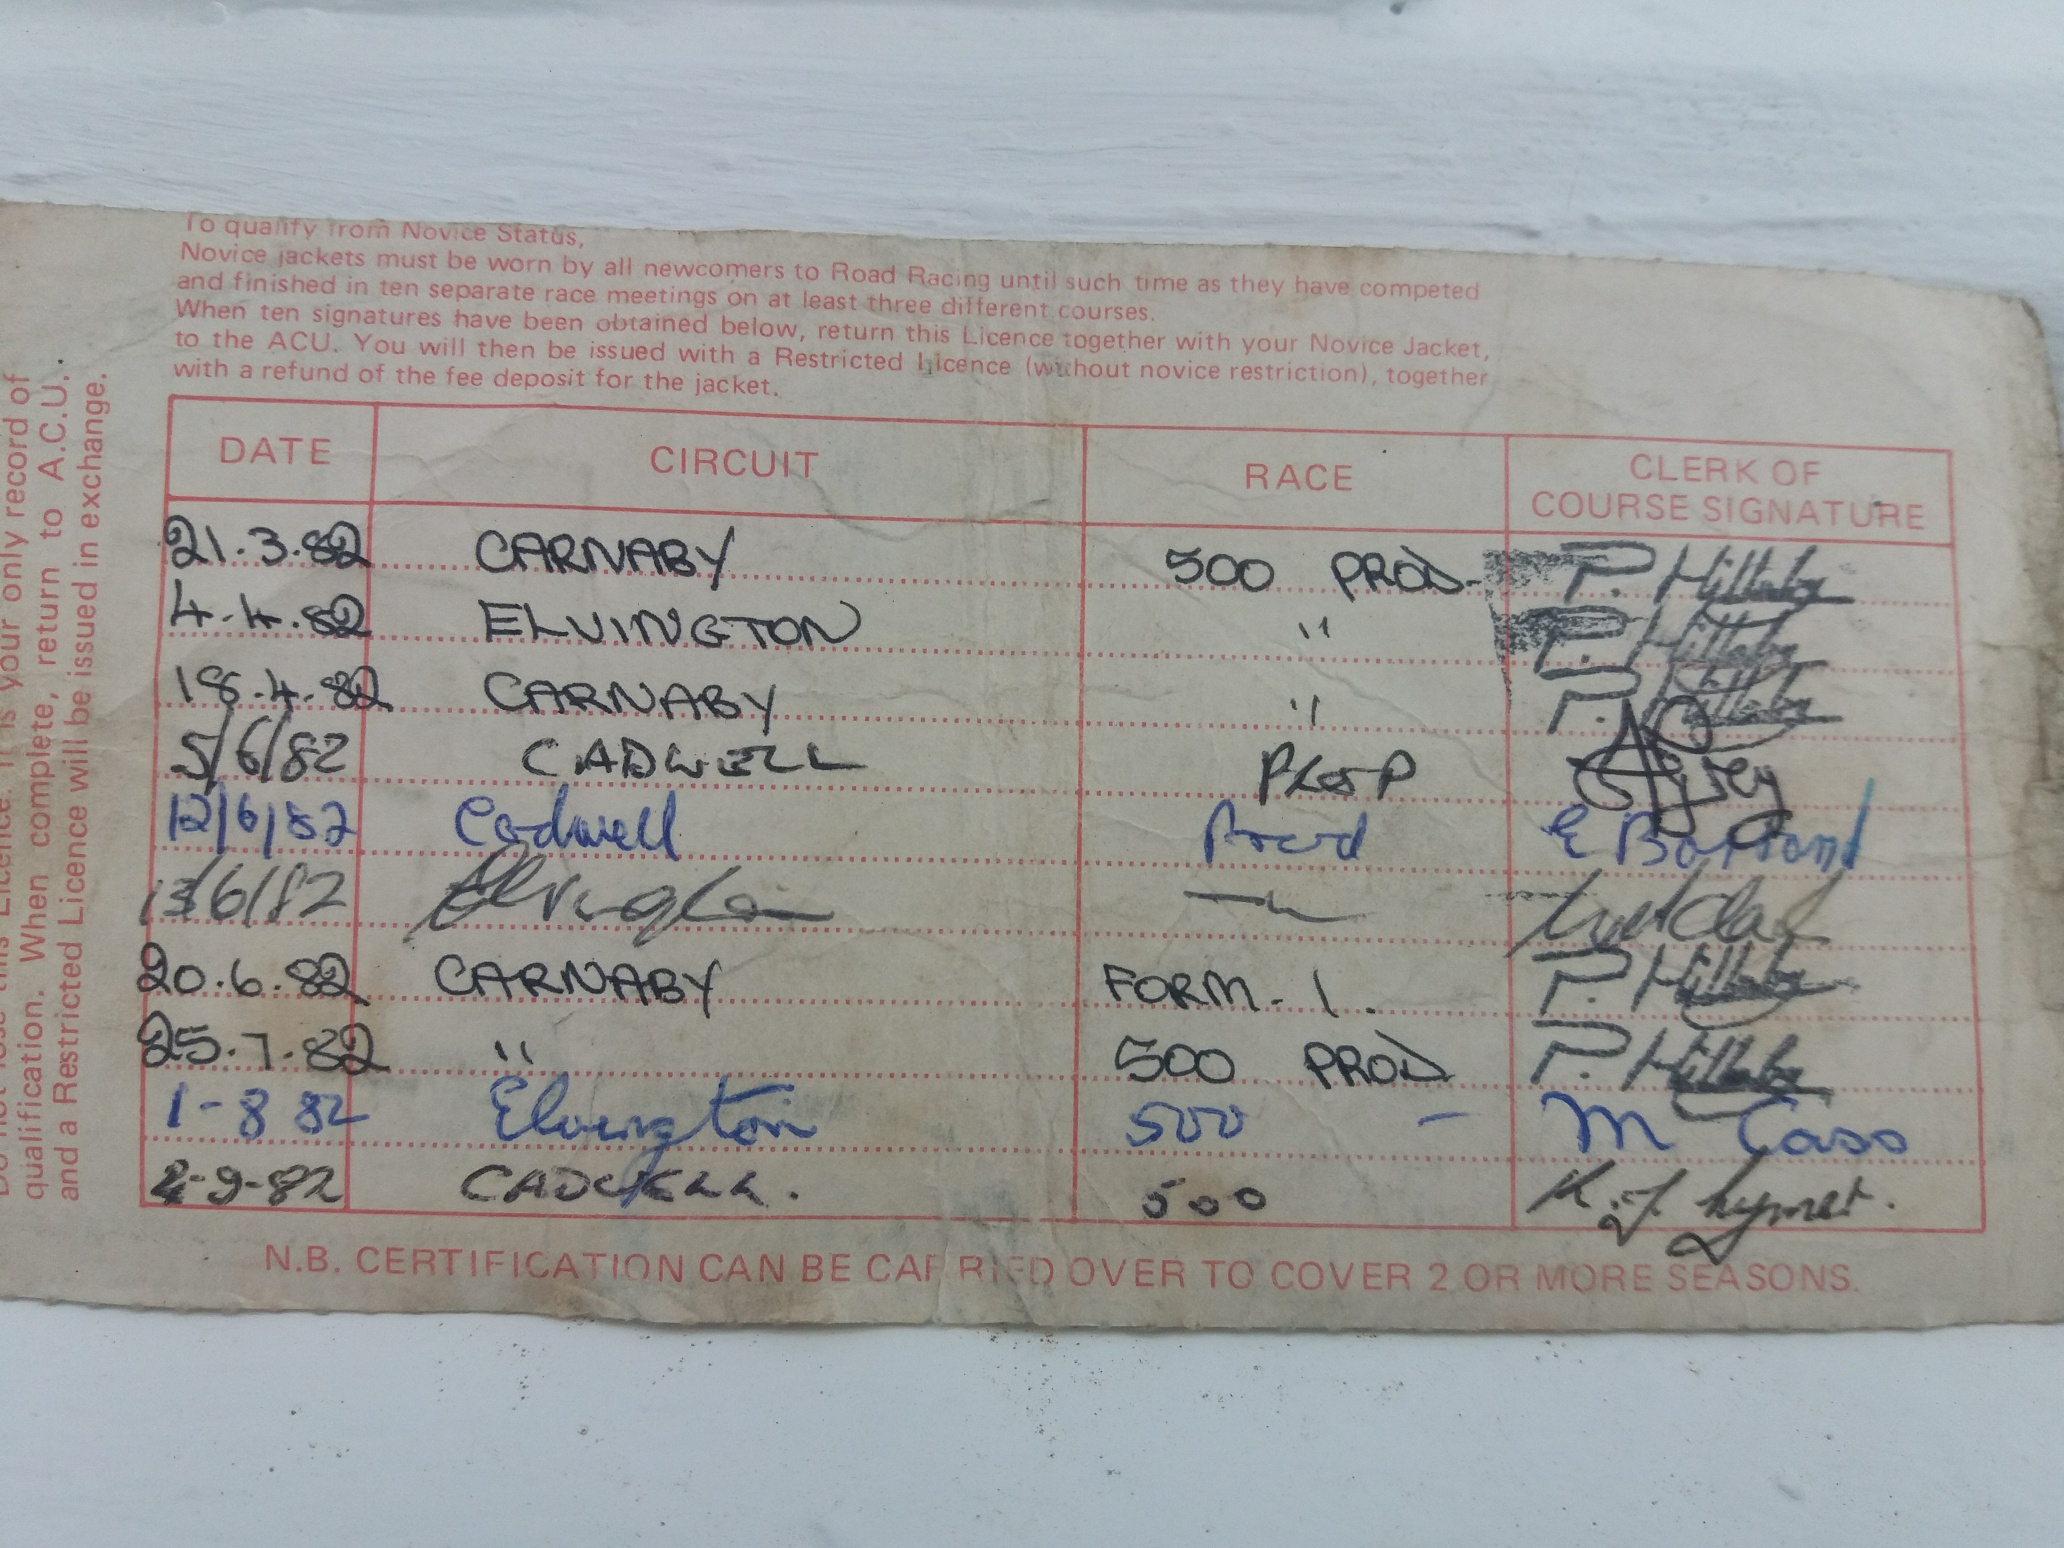 To qualify from Novice Status,
Novice jackets must be worn by all newcomers to Road Racing until such time as they have competed
and finished in ten separate race meetings on at least three different courses.
When ten signatures have been obtained below, return this Licence together with your Novice Jacket,
to the ACU. You will then be issued with a Restricted Licence (without novice restriction), together
with a refund of the fee deposit for the jacket.
DATE CIRCUIT RACE CLERK OF
COURSE SIGNATURE
21.3.82 CARNABY 500 PROD. P. Hillaby
4.4.82 ELVINGTON " P. Hillaby
18.4.82 CARNABY " P. Hillaby
5/6/82 CADWELL
12/6/82 Cadwell Prod E
13/6/82 Elvington
20.6.82 CARNABY FORM. 1. P. Hillaby
25.7.82 " 500 PROD P. Hillaby
1-8 82 Elvington 500 - M Cass
-9-82 CADWELL. 500 K.J.
N.B. CERTIFICATION CAN BE CARRIED OVER TO COVER 2 OR MORE SEASONS.
your only record of
qualification. When complete, return to A.C.U.
and a Restricted Licence will be issued in exchange.